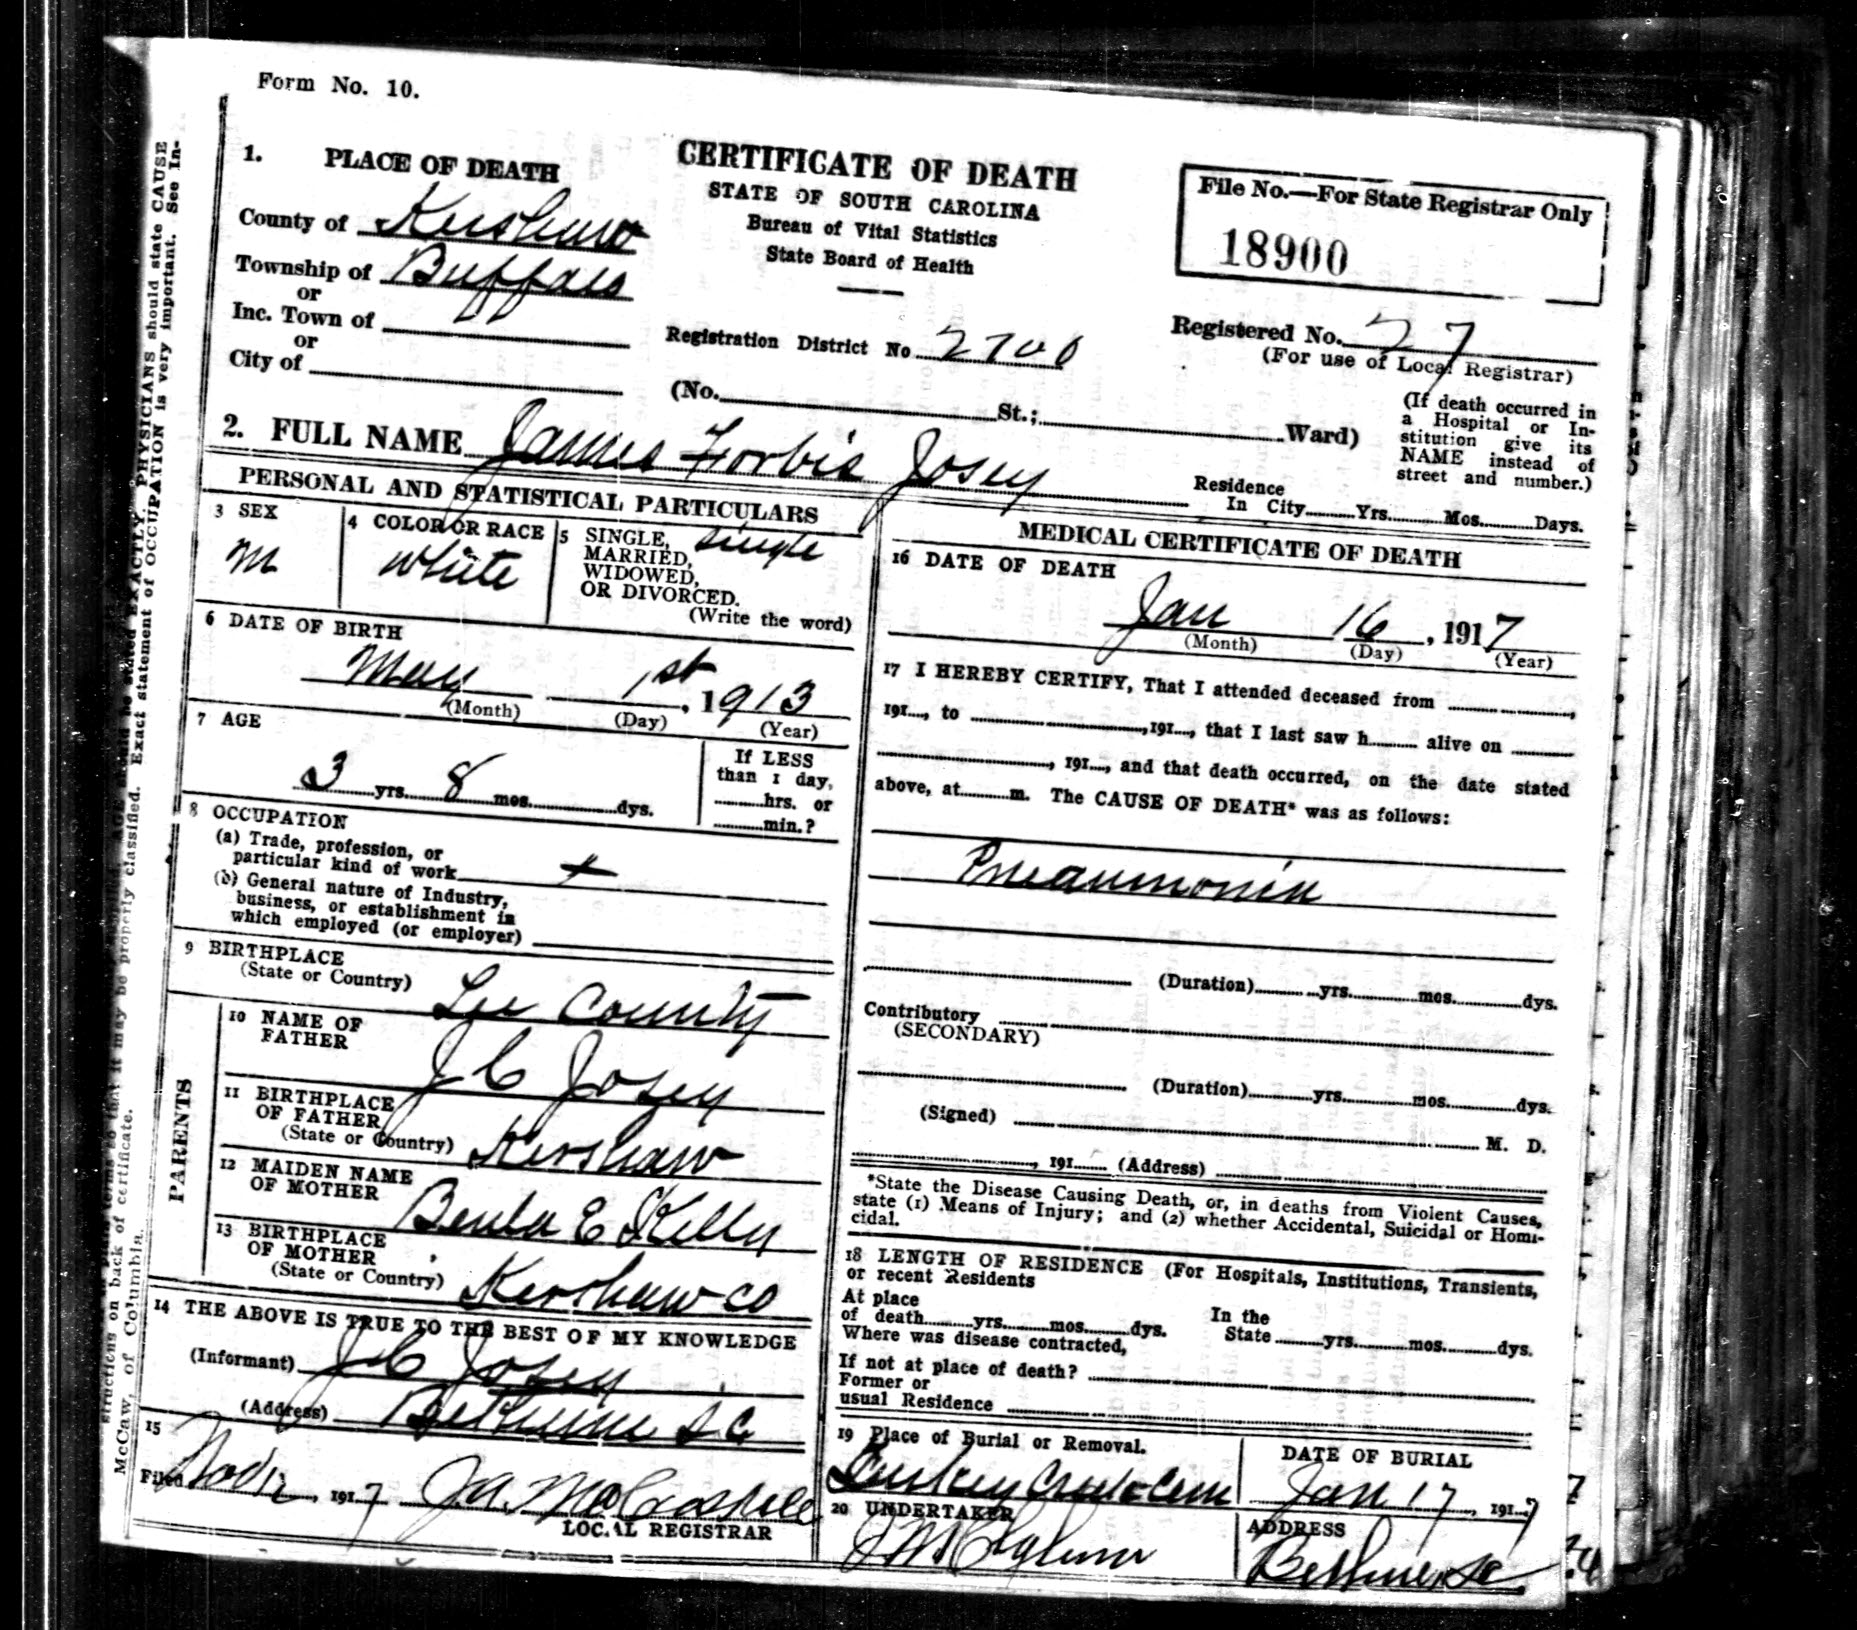 Form No. 10.
1. PLACE OF DEATH
County of Kershaw
Township of Buffalo
or
Inc. Town of
or
City of
CERTIFICATE OF DEATH
STATE OF SOUTH CAROLINA
Bureau of Vital Statistics
State Board of Health
File No.—For State Registrar Only
18900
Registration District No 2700
Registered No. 27
(For use of Local Registrar)
(No. St.; Ward)
(If death occurred in
a Hospital or In-
stitution give its
NAME instead of
street and number.)
2. FULL NAME James Forbis Josey
Residence
In City Yrs. Mos. Days.
PERSONAL AND STATISTICAL PARTICULARS
3 SEX
M
4 COLOR OR RACE
White
5 SINGLE, Single
MARRIED,
WIDOWED,
OR DIVORCED.
(Write the word)
6 DATE OF BIRTH
May 1st, 1913
(Month) (Day) (Year)
7 AGE
3 yrs. 8 mos. dys.
If LESS
than 1 day,
hrs. or
min.?
8 OCCUPATION
(a) Trade, profession, or
particular kind of work
(b) General nature of Industry,
business, or establishment in
which employed (or employer)
9 BIRTHPLACE
(State or Country) Lee County
PARENTS
10 NAME OF
FATHER J C Josey
11 BIRTHPLACE
OF FATHER
(State or Country) Kershaw
12 MAIDEN NAME
OF MOTHER Beula E Kelly
13 BIRTHPLACE
OF MOTHER
(State or Country) Kershaw co
14 THE ABOVE IS TRUE TO THE BEST OF MY KNOWLEDGE
(Informant) J C Josey
(Address) Bethune S.C.
15
Filed , 1917
LOCAL REGISTRAR
MEDICAL CERTIFICATE OF DEATH
16 DATE OF DEATH
Jan 16, 1917
(Month) (Day) (Year)
17 I HEREBY CERTIFY, That I attended deceased from ,
191 , to , 191 , that I last saw h alive on
, 191 , and that death occurred, on the date stated
above, at m. The CAUSE OF DEATH* was as follows:
Pneaumonia
(Duration) yrs. mos. dys.
Contributory
(SECONDARY)
(Duration) yrs. mos. dys.
(Signed) M. D.
, 191 (Address)
*State the Disease Causing Death, or, in deaths from Violent Causes,
state (1) Means of Injury; and (2) whether Accidental, Suicidal or Homi-
cidal.
18 LENGTH OF RESIDENCE (For Hospitals, Institutions, Transients,
or recent Residents
At place
of death yrs. mos. dys.
In the
State yrs. mos. dys.
Where was disease contracted,
If not at place of death?
Former or
usual Residence
19 Place of Burial or Removal.
Turkey Creek Cem
DATE OF BURIAL
Jan 17, 1917
20 UNDERTAKER
ADDRESS
Bethune, SC
PHYSICIANS should state CAUSE
Exact statement of OCCUPATION is very important. See In-
structions on back of certificate.
McCaw, of Columbia.